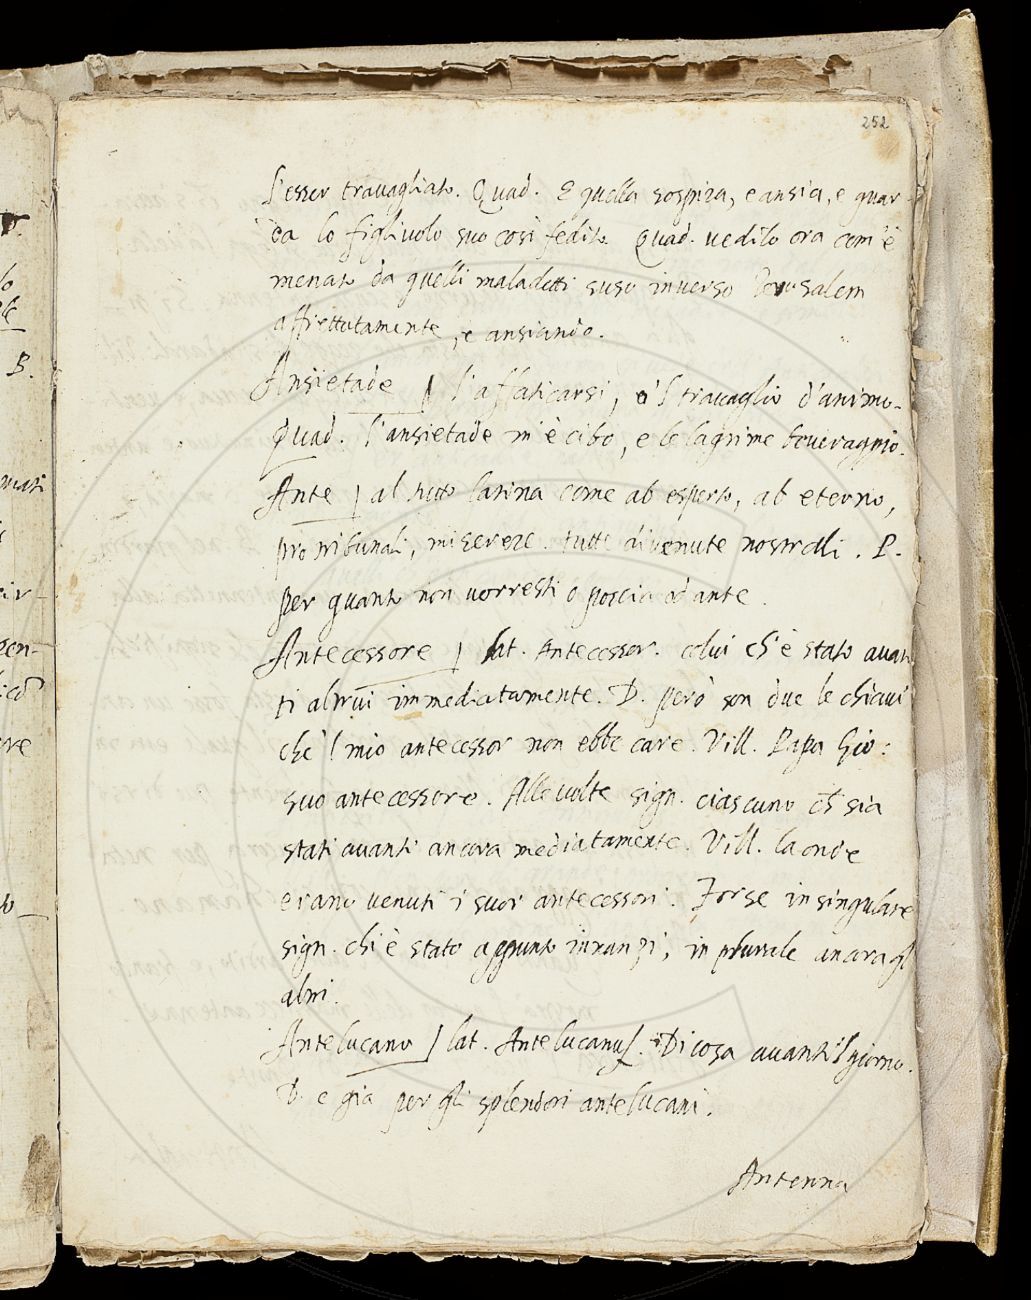 252
l'esser travagliato. Quad. E quella sospira, e ansia, e guar-
da lo figlivolo suo così fedito. Quad. vedilo ora com'è
menato da quelli maladetti suso inverso Jerusalem
affrettatamente, e ansiando.
Ansietade l'affaticarsi, o 'l travaglio d'animo.
Quad. l'ansietade m'è cibo, e le lagrime beveraggio.
Ante al tutto latina come ab esperto, ab eterno,
pro tribunali, miserere. tutte divenute nostrali. P.
per quanto non vorresti o poscia od ante.
Antecessore lat. Antecessor. colui ch'è stato avan
ti altrui immediatamente. D. però son due le chiavi
che 'l mio antecessor non ebbe care. Vill. Papa Gio:
suo antecessore. Alle volte sign. ciascuno ch sia
stati avanti ancora mediatamente. Vill. laonde
erano venuti i suoi antecessori. Forse in singulare
sign. chi è stato appunto innanzi, in plurale ancora gl
altri.
Antelucano lat. Antelucanus. Di cosa avanti 'l giorno.
D. e gia per gli splendori antelucani.
Antenna